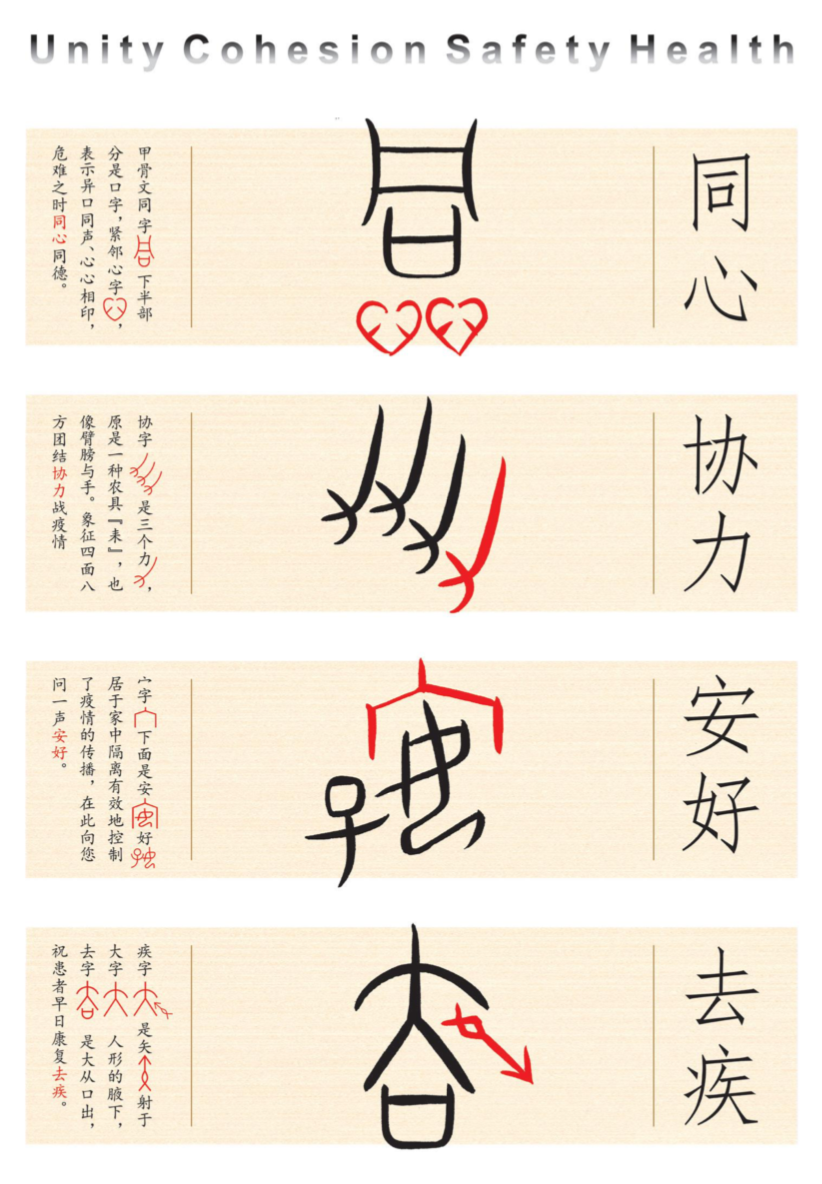 Unity Cohesion Safety Health
同心
甲骨文同字 下半部
分是口字，紧邻心字 ，
表示异口同声、心心相印，
危难之时同心同德。
协力
协字 是三个力 ，
原是一种农具『耒』，也
像臂膀与手。象征四面八
方团结协力战疫情
安好
宀字 下面是安 好
居于家中隔离有效地控制
了疫情的传播，在此向您
问一声安好。
去疾
疾字 是矢 射于
大字 人形的腋下，
去字 是大从口出，
祝患者早日康复去疾。